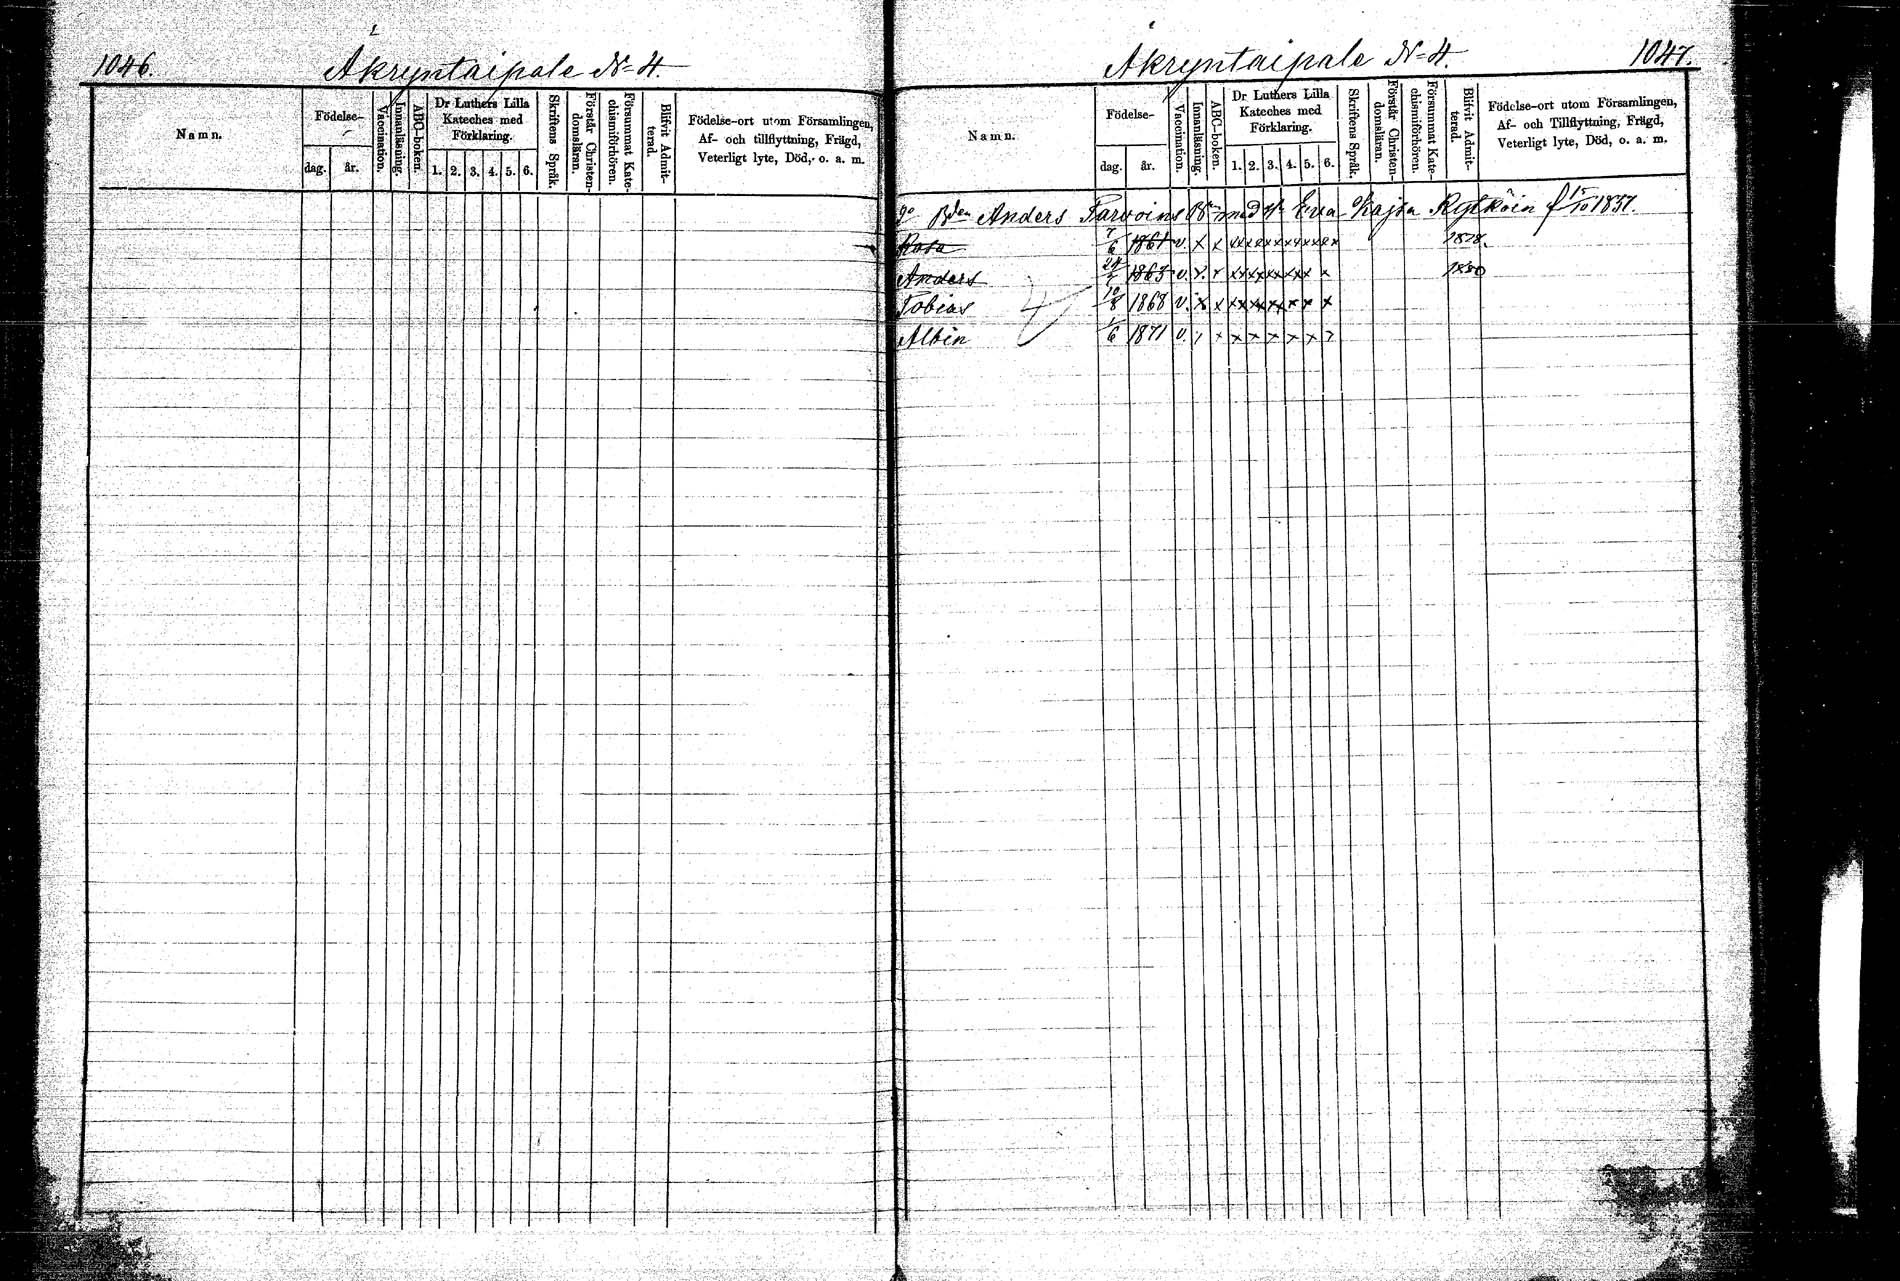 1046.
Åkryntaipale No 4.
Namn.
Födelse-
dag.
år.
Vaccination.
Innanläsning
ABC-boken.
Dr Luthers Lilla
Kateches med
Förklaring.
1. 2. 3. 4. 5. 6.
Skriftens Språk.
Förstår Christen-
domsläran.
Försummat Kate-
chismiförhören.
Blifvit Admit-
terad.
Födelse-ort utom Församlingen,
Af- och tillflyttning, Frägd,
Veterligt lyte, Död, o. a. m.
Åkryntaipale No 4.
1047.
Namn.
Födelse-
dag.
år.
Vaccination.
Innanläsning.
ABC-boken.
Dr Luthers Lilla
Kateches med
Förklaring.
1. 2. 3. 4. 5. 6.
Skriftens Språk.
Förstår Christen-
domsläran.
Försummat Kate-
chismiförhören.
Blifvit Admit-
terad.
Födelse-ort utom Församlingen,
Af- och Tillflyttning, Frägd,
Veterligt lyte, Död, o. a. m.
Bden Anders Tarvoins Bn med H. Eva Kajsa Rytköin f 15/10 1837.
Rosa 7/6 1861 v. x x xxxxxxxxxxxx 1878.
Anders 1863 v. x x xxxxxxxx x 1880
Tobias 10/8 1868 v. x x xxxxxxx x x
Albin 1/6 1871 v. x x x x x x x